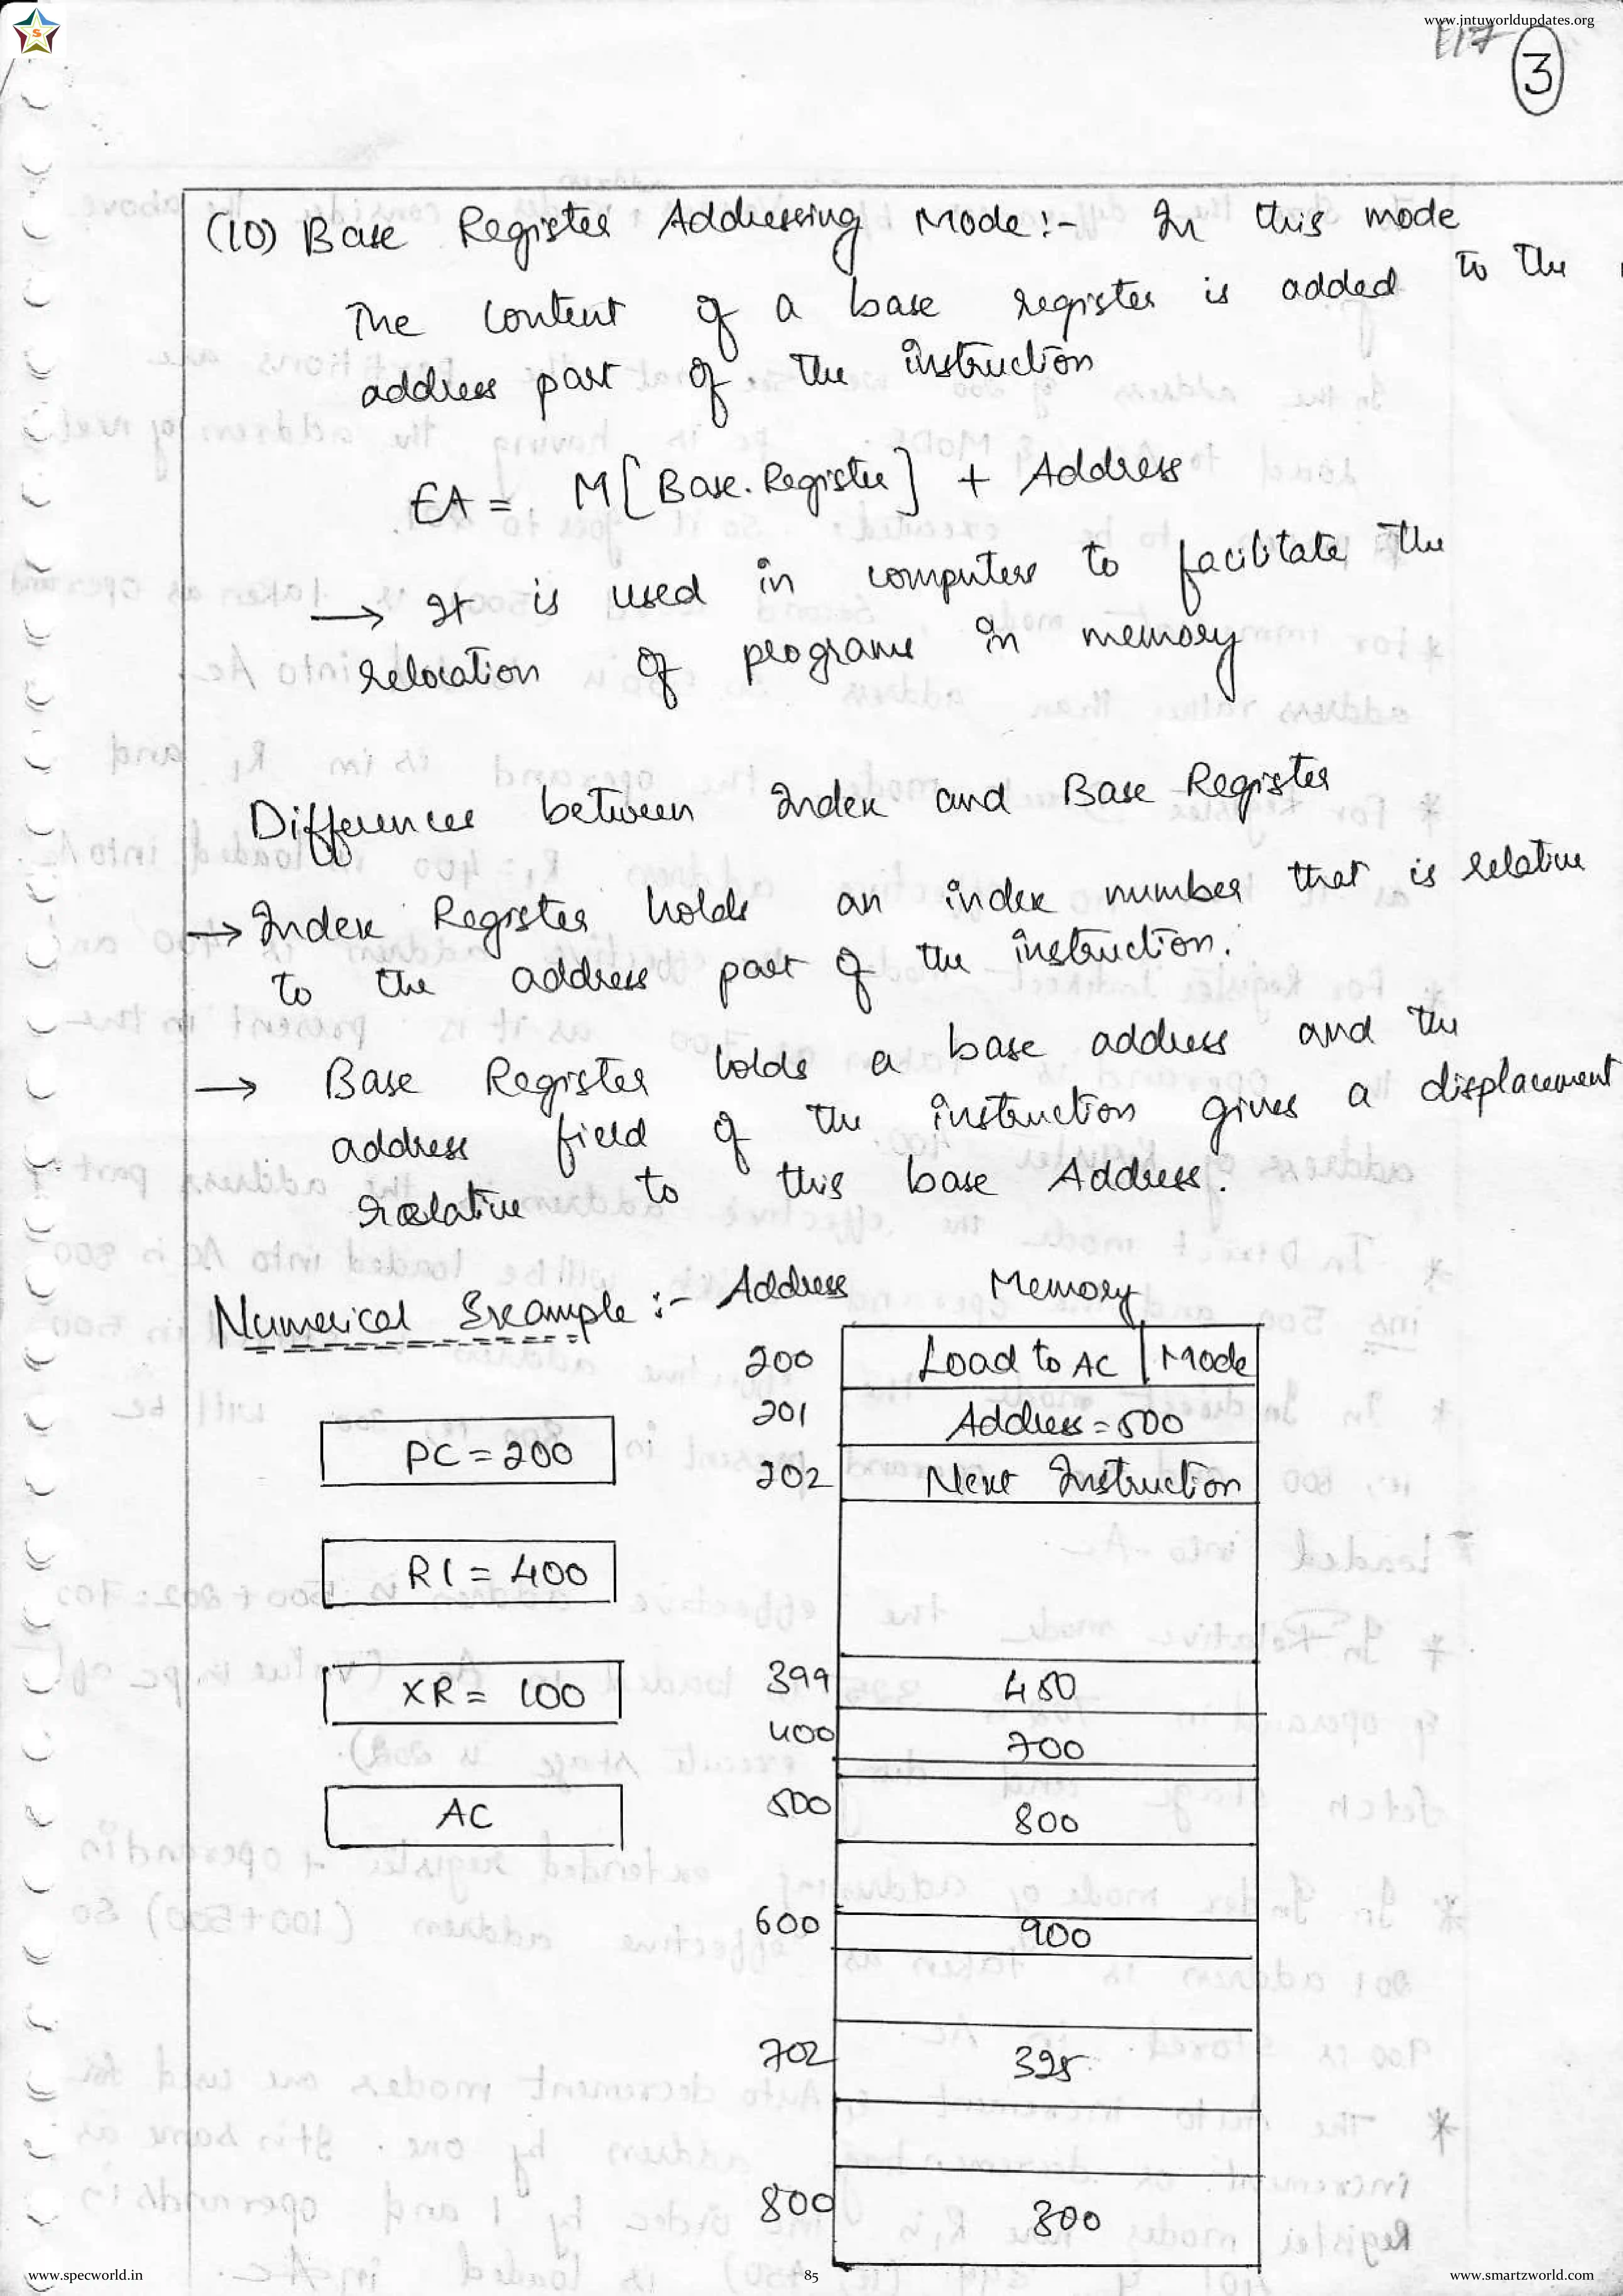 www.jntuworldupdates.org
3
(10) Base Register Addressing Mode:- In this mode
The content of a base register is added to the
address part of the instruction
EA = M[Base.Register] + Address
→ It is used in computers to facilitate the
relocation of programs in memory
Differences between Index and Base Register
→ Index Register holds an index number that is relative
to the address part of the instruction.
→ Base Register holds a base address and the
address field of the instruction gives a displacement
relative to this base Address.
Numerical Example:- Address Memory
200 Load to AC | Mode
201 Address = 500
PC = 200
202 Next Instruction
R1 = 400
399 450
XR = 100
400 700
500 800
AC
600 900
702 325
800 300
www.specworld.in 85 www.smartzworld.com